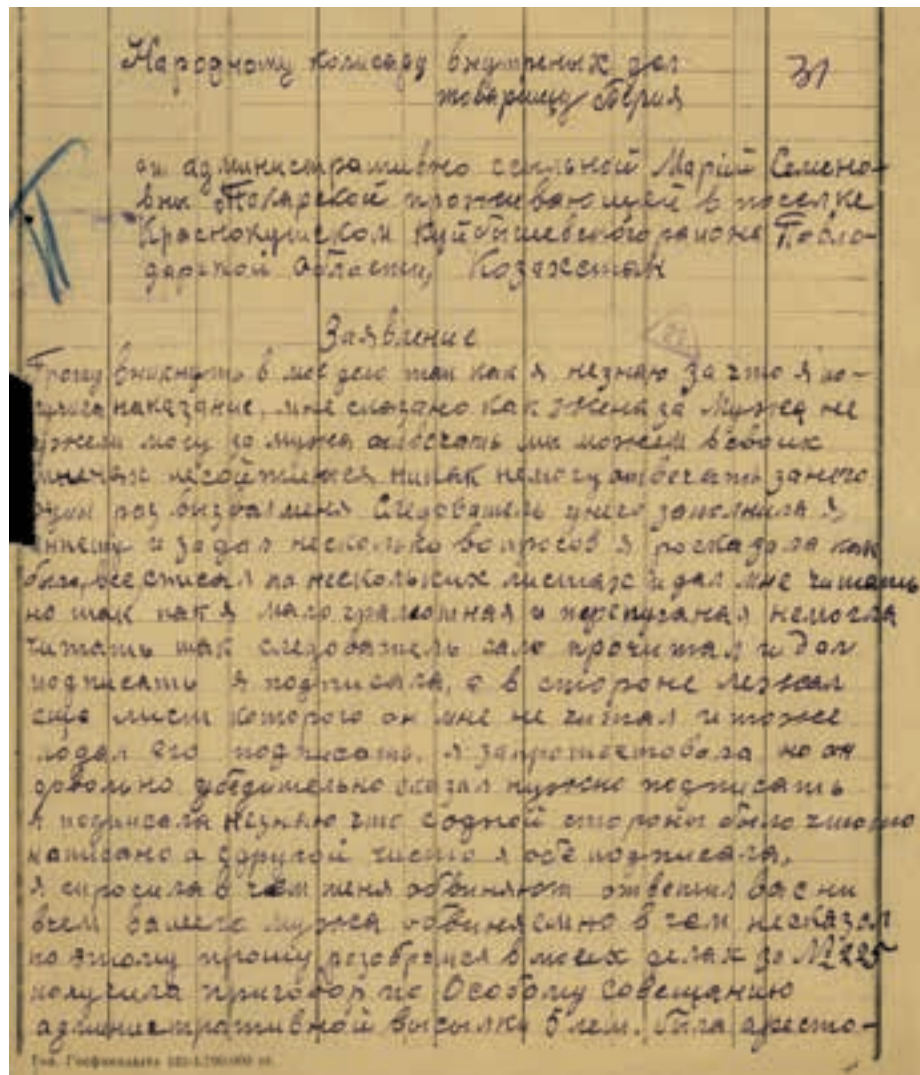 Народному комисару внутреных дел
товарищу Берия
31
от административно ссыльной Марій Семено-
вны Токарской проживающей в поселке
Краснокутском Куйбышевского района Павло-
дарской области, Козахстан
Заявление
Прошу вникнуть в мое дело так как я незнаю за что я по-
наказание, мне сказано как жена за мужа не
ужели могу за мужа отвечать мы можем всвоих
несойтиться никак немогу отвечать занего
один раз вызвал меня Следователь унего заполнила я
анкету и задал несколько вопросов я росказала как
было, все списал на нескольких листах и дал мне читать
но так как я мало грамотная и перепуганая немогла
читать так следователь сам прочитал и дал
подписать я подписала, а в стороне лежал
еще лист которого он мне не читал и тоже
подал его подписать. я запротестовала но он
довольно убедительно сказал нужно подписать
я подписала незнаю что содной стороны было что то
написано а сдругой чисто я обе подписала,
я спросила в чем меня обвиняют ответил вас ни
вчем вашего мужа обвиняем но в чем несказал
поэтому прошу розобраться в моих делах за № 225
получила приговор по Особому Совещанию
административной высылки 5 лет. Была аресто-